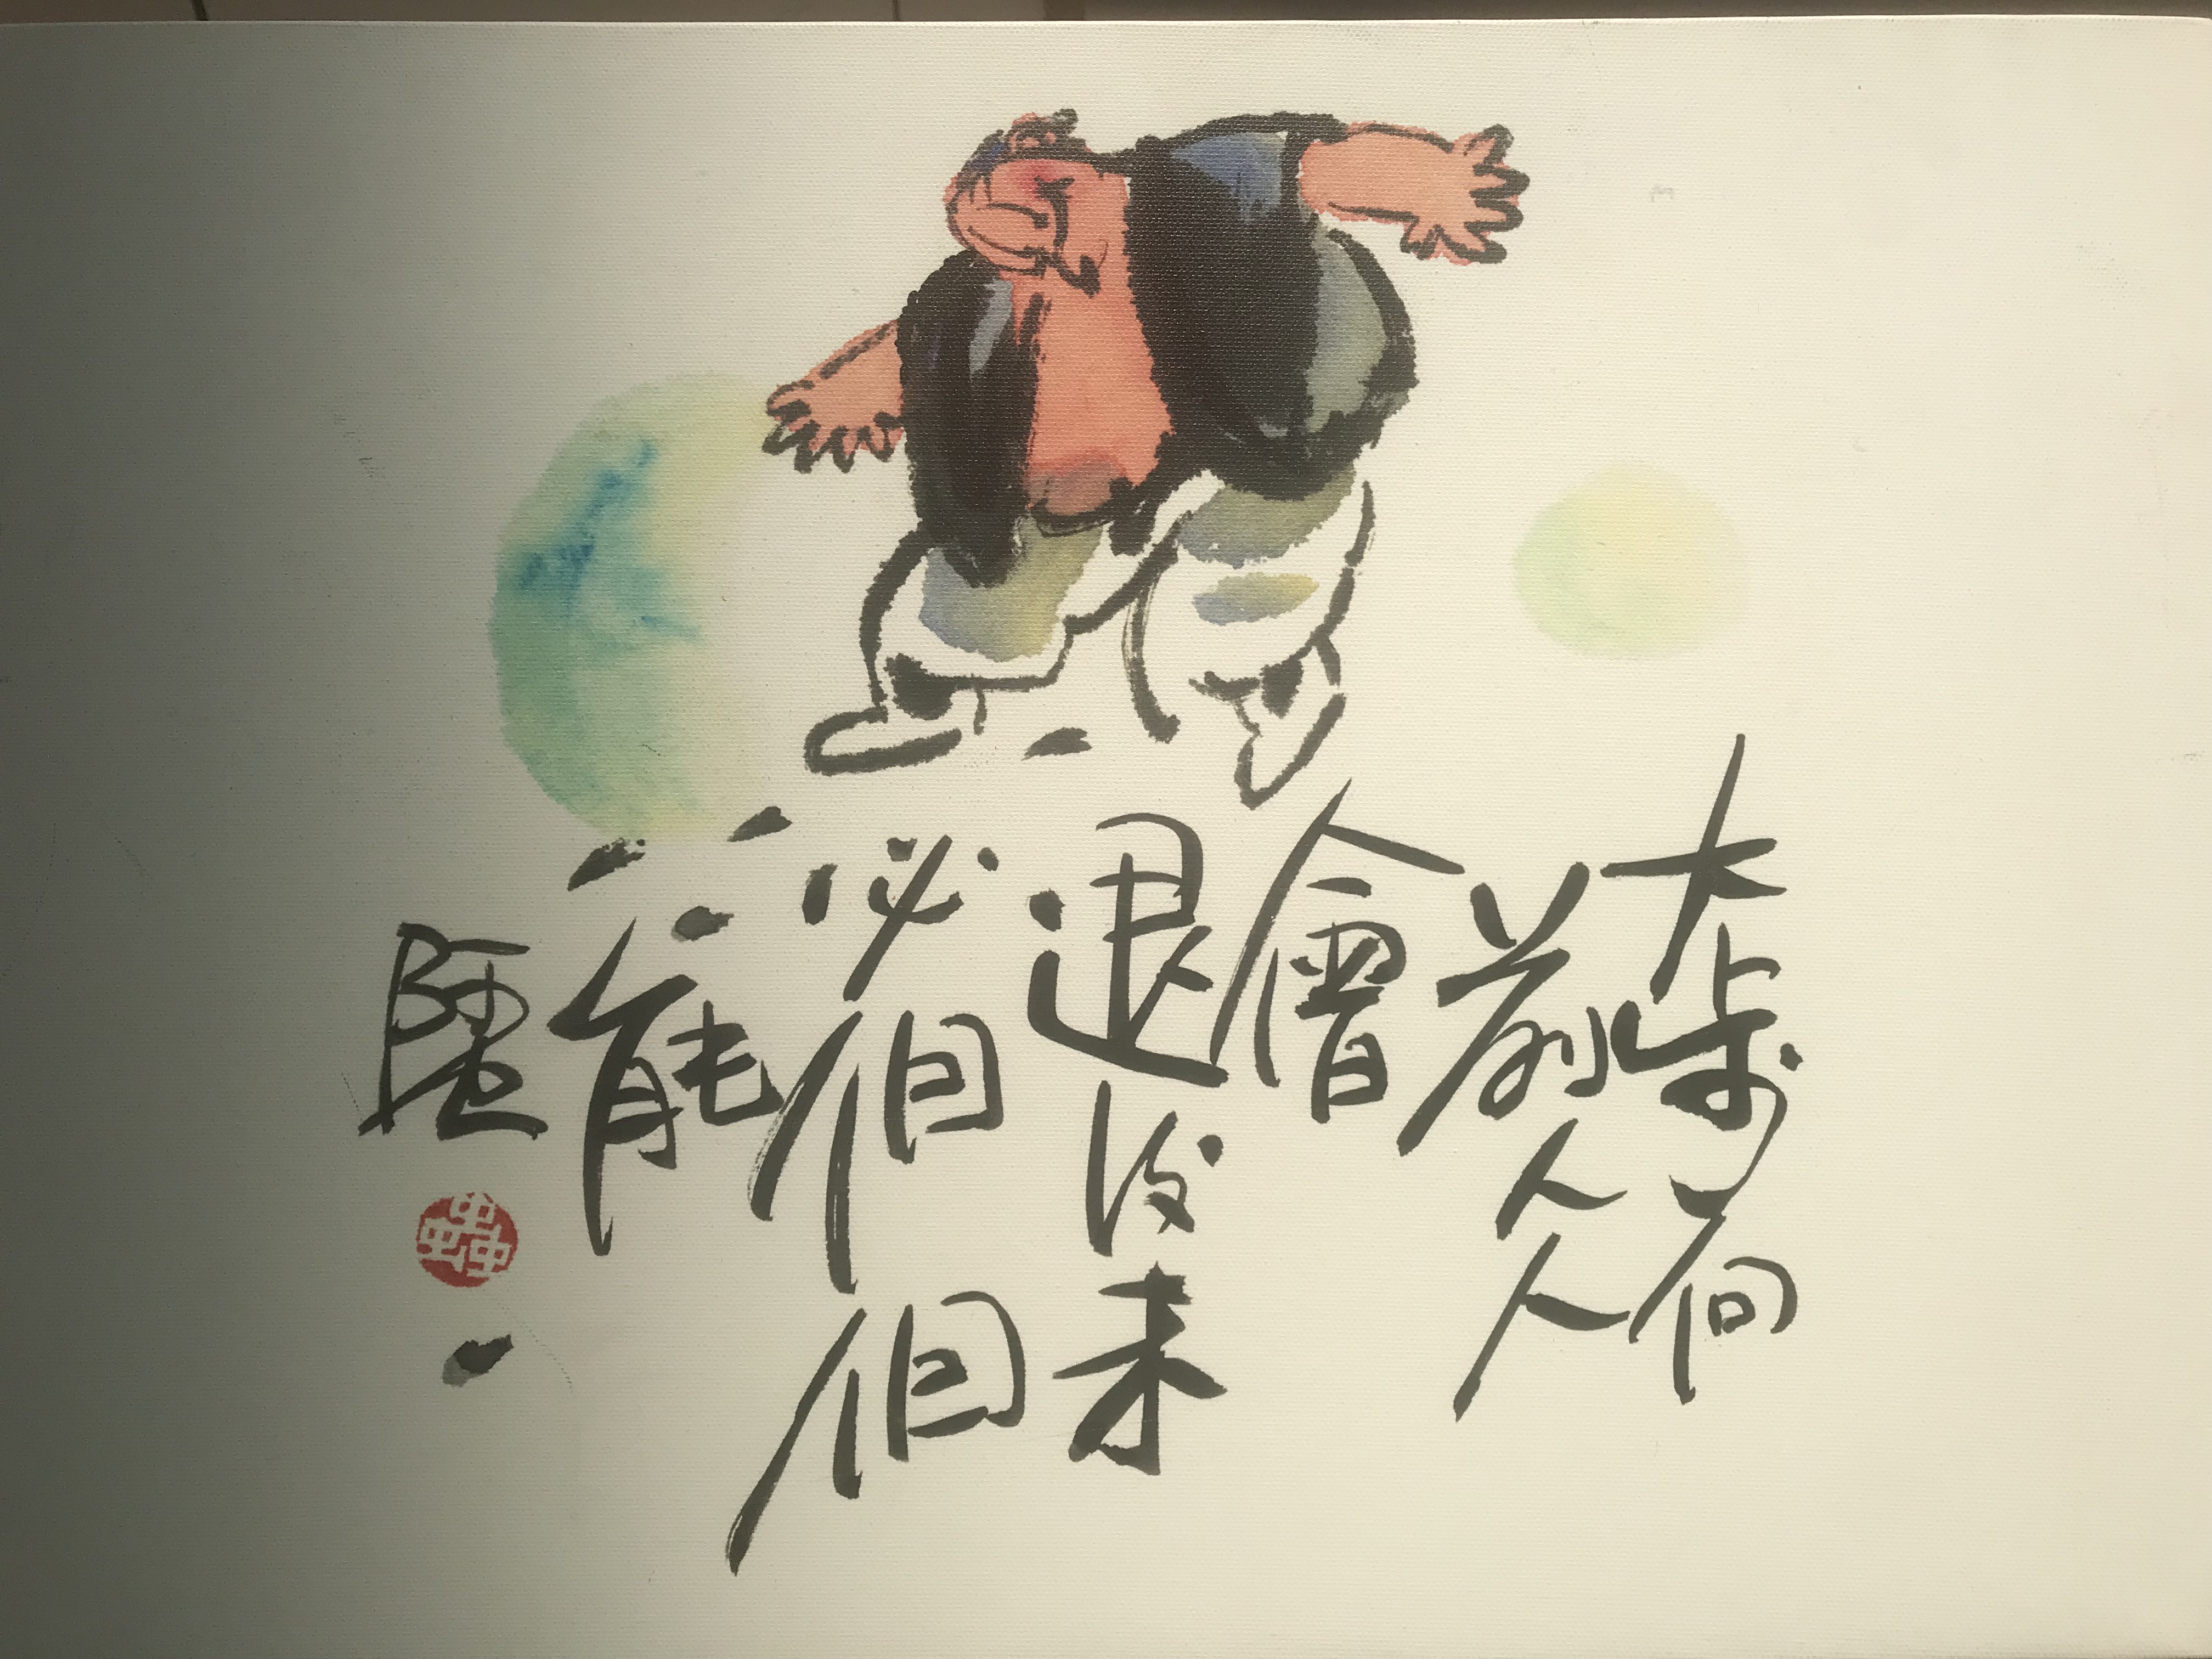 大步向
前人人
會
退後未
必個個
能
阿虫